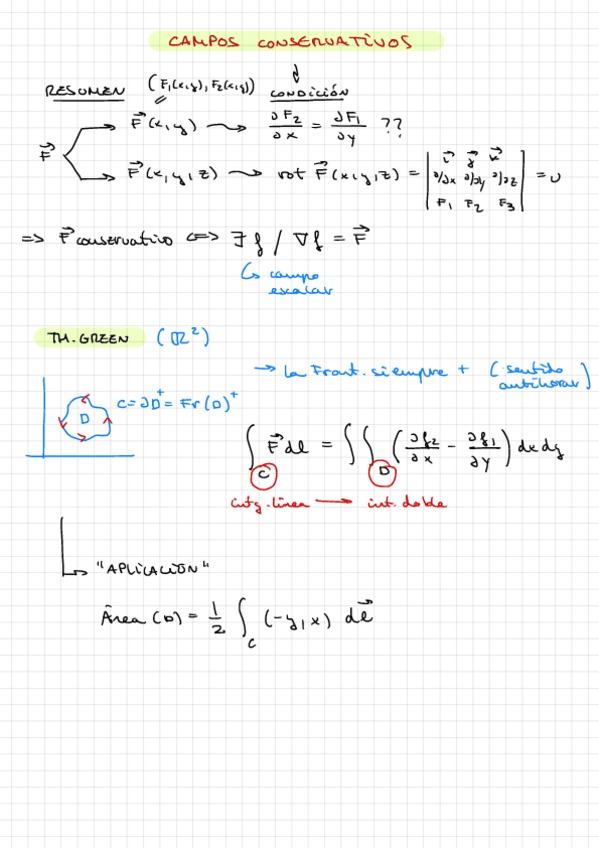 CAMPOS CONSERVATIVOS
RESUMEN (F₁(x,y), F₂(x,y)) CONDICIÓN
F⃗(x,y) ⟿ ∂F₂/∂x = ∂F₁/∂y ??
F⃗
F⃗(x,y,z) ⟿ rot F⃗(x,y,z) = | i⃗ j⃗ k⃗ ; ∂/∂x ∂/∂y ∂/∂z ; F₁ F₂ F₃ | = 0
=> F⃗ conservativo <=> ∃ f / ∇f = F⃗
↳ campo
escalar
TH. GREEN (ℝ²)
→ la Front. siempre + (sentido
antihorar)
C = ∂D⁺ = Fr(D)⁺
D
∫_C F⃗ dl = ∫∫_D (∂f₂/∂x − ∂f₁/∂y) dx dy
intg. linea → int. doble
↳ "APLICACIÓN"
Área (D) = 1/2 ∫_C (-y, x) dl⃗